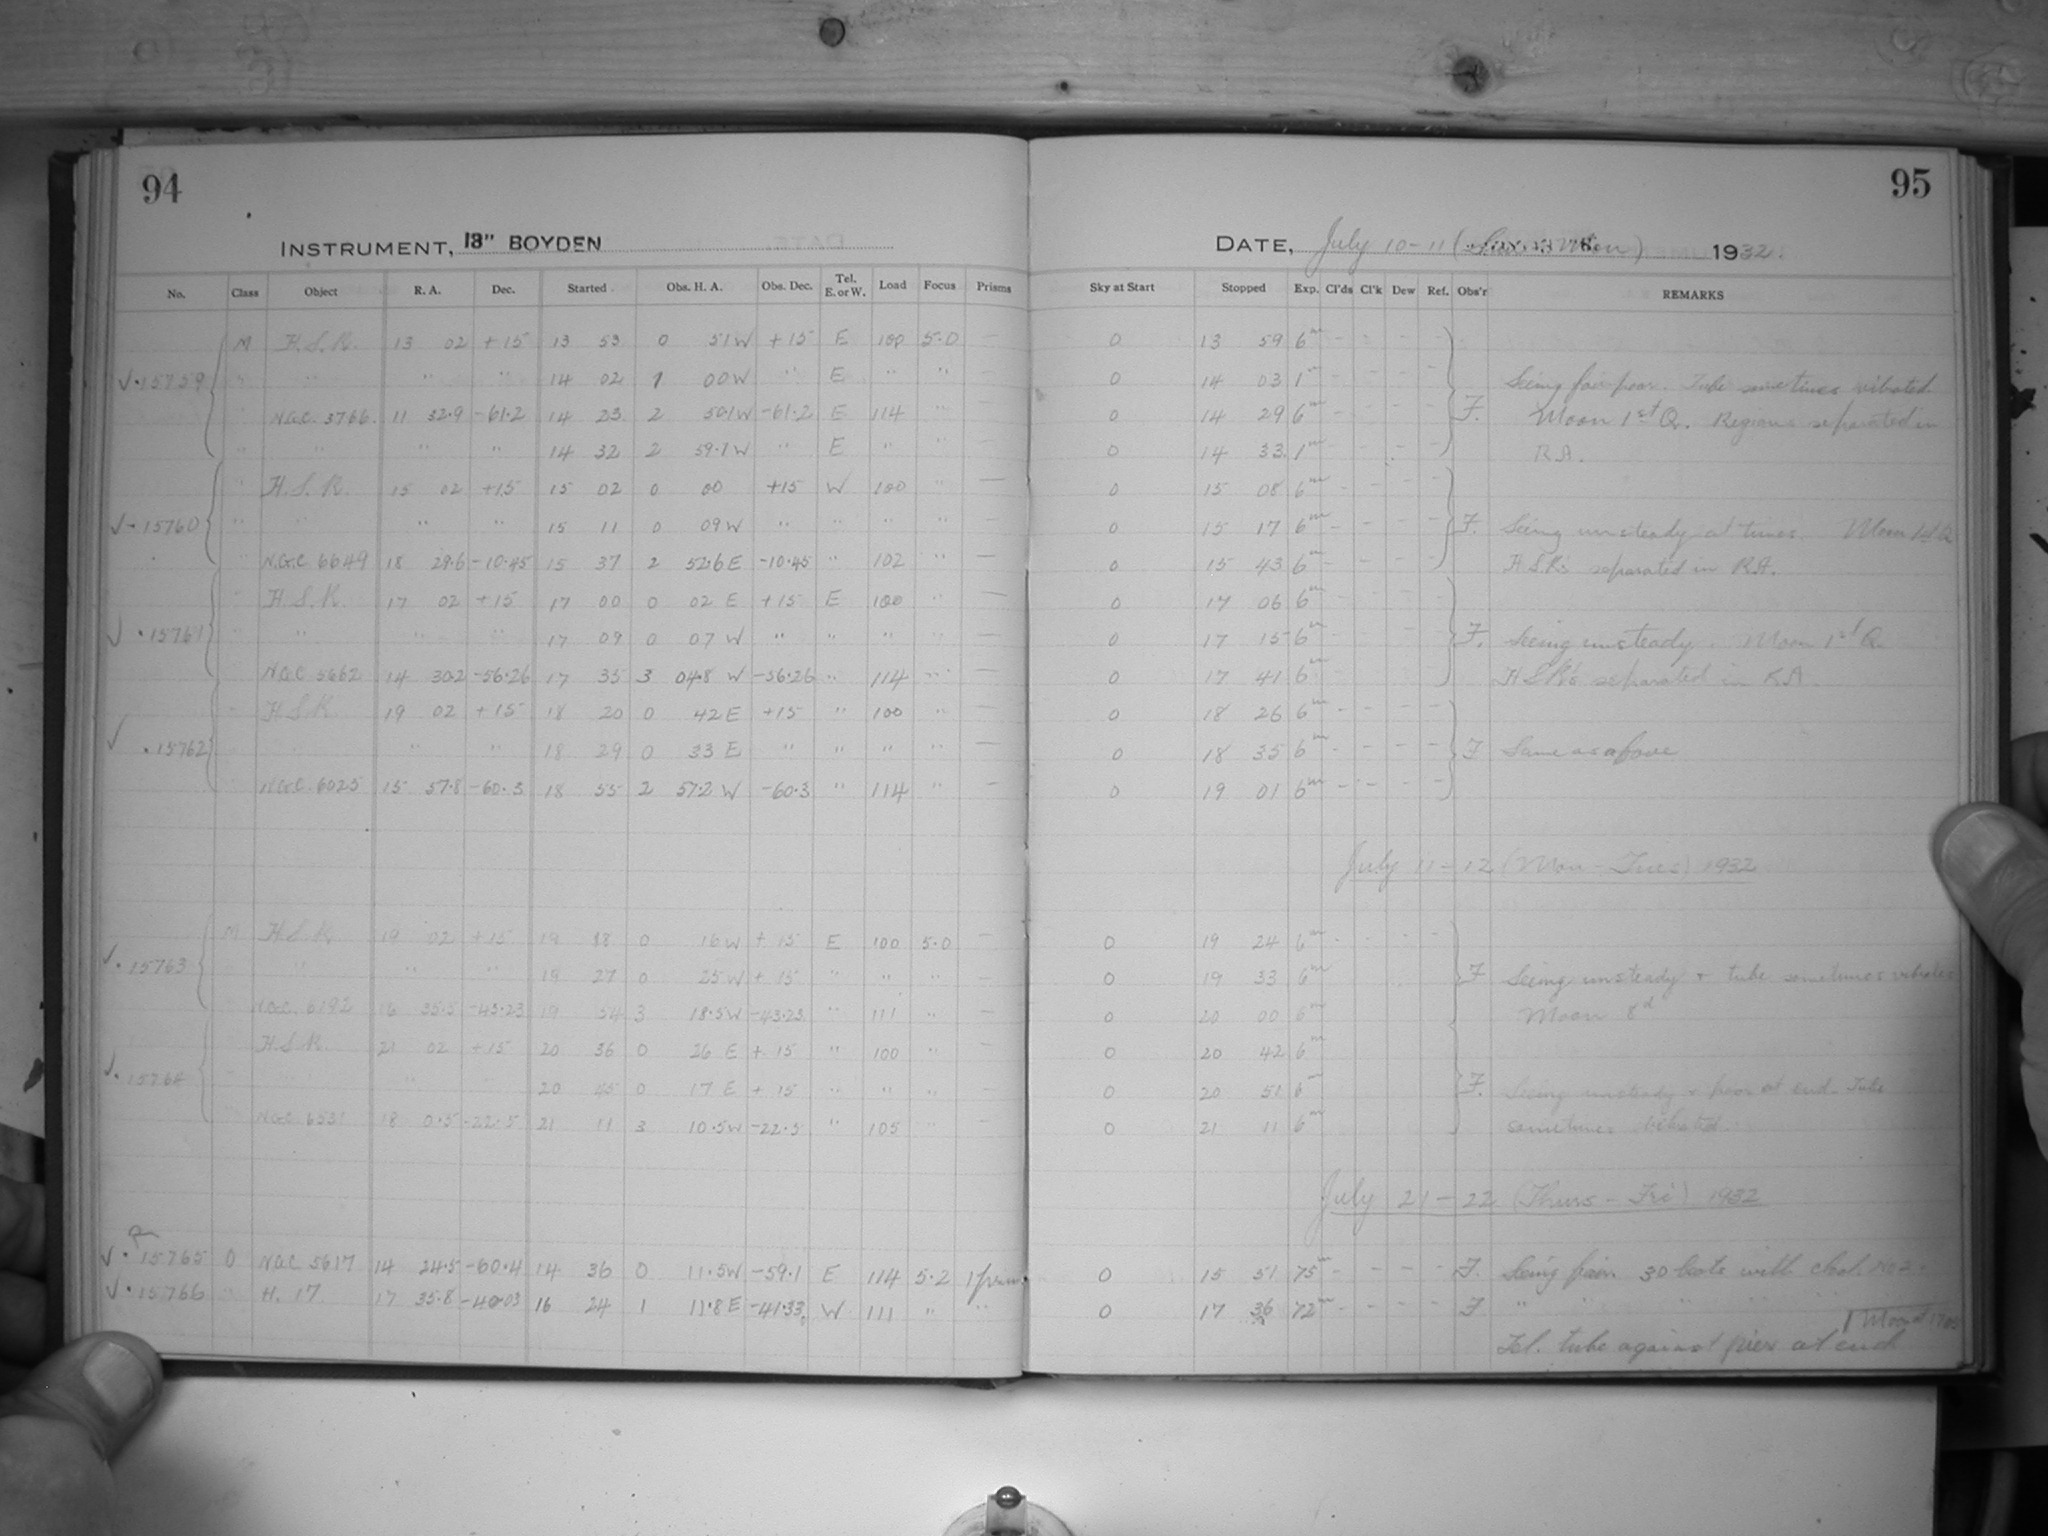 94
INSTRUMENT, 13" BOYDEN
No. Class Object R. A. Dec. Started Obs. H. A. Obs. Dec. Tel. E. or W. Load Focus Prisms
M H.S.R. 13 02 +15 13 53 0 51 W +15 E 100 5.0 —
✓ · 15759 " " " " 14 02 1 00 W " E " " —
" N.G.C. 3766 11 32.9 -61.2 14 23 2 50.1 W -61.2 E 114 " —
" " " " 14 32 2 59.1 W " E " " —
" H.S.R. 15 02 +15 15 02 0 00 +15 W 100 " —
✓ - 15760 " " " " 15 11 0 09 W " " " " —
" N.G.C. 6649 18 29.6 -10.45 15 37 2 52.6 E -10.45 " 102 " —
" H.S.R. 17 02 +15 17 00 0 02 E +15 E 100 " —
✓ · 15761 " " " " 17 09 0 07 W " " " " —
N.G.C. 5662 14 30.2 -56.26 17 35 3 04.8 W -56.26 " 114 " —
H.S.R. 19 02 +15 18 20 0 42 E +15 " 100 " —
✓ · 15762 " " " 18 29 0 33 E " " " " —
N.G.C. 6025 15 57.8 -60.3 18 55 2 57.2 W -60.3 " 114 " —
M H.S.R. 19 02 +15 19 18 0 16 W +15 E 100 5.0 —
✓ · 15763 " " " 19 27 0 25 W +15 " " " —
N.G.C. 6192 16 35.5 -43.23 19 54 3 18.5 W -43.23 " 111 " —
H.S.R. 21 02 +15 20 36 0 26 E +15 " 100 " —
✓ · 15764 " 20 45 0 17 E +15 " " " —
N.G.C. 6531 18 0.5 -22.5 21 11 3 10.5 W -22.5 " 105 " —
✓ · 15765 O N.G.C. 5617 14 24.5 -60.4 14 36 0 11.5 W -59.1 E 114 5.2 1 prism
✓ · 15766 " H. 17 17 35.8 -40.03 16 24 1 11.8 E -41.33 W 111 " "
95
DATE, July 10-11 ( Mon) 1932.
Sky at Start Stopped Exp. Cl'ds Cl'k Dew Ref. Obs'r REMARKS
0 13 59 6m - - - -
0 14 03 1m - - - - Seeing fair-poor. Tube sometimes vibrated
0 14 29 6m - - - - F. Moon 1st Q. Regions separated in
0 14 33 1m - - - - R.A.
0 15 08 6m - - - -
0 15 17 6m - - - - F. Seeing unsteady at times. Moon 1st Q
0 15 43 6m - - - - H S R's separated in R.A.
0 17 06 6m - - - -
0 17 15 6m - - - - F. Seeing unsteady. Moon 1st Q.
0 17 41 6m - - - - H S R's separated in R.A.
0 18 26 6m - - - -
0 18 35 6m - - - - F Same as above
0 19 01 6m - - - -
July 11-12 (Mon-Tues) 1932
0 19 24 6m
0 19 33 6m F Seeing unsteady + tube sometimes vibrates
0 20 00 6m Moon 8d
0 20 42 6m
0 20 51 6m F. Seeing unsteady + poor at end. Tube
0 21 11 6m sometimes vibrated.
July 21-22 (Thurs-Fri) 1932
0 15 51 75m - - - - F. Seeing fair. 30 beats with clock
0 17 36 72m - - - - F " " " "
Moon at
Tel. tube against pier at end